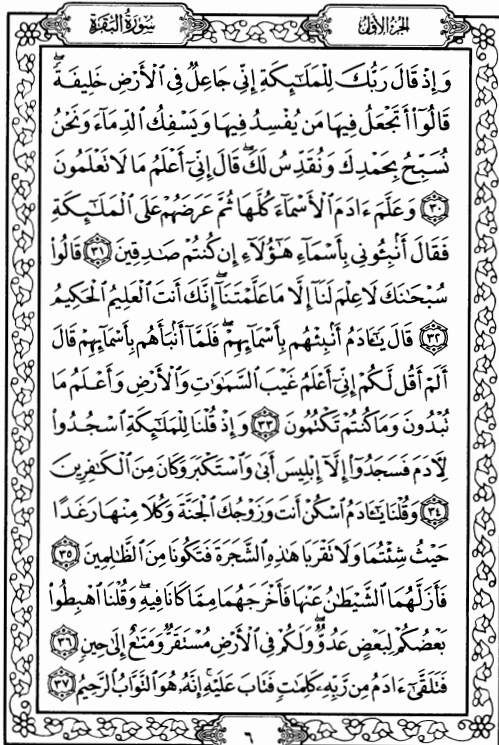 سورة البقرة
الجزء الأول
وَإِذْ قَالَ رَبُّكَ لِلْمَلَـٰٓئِكَةِ إِنِّى جَاعِلٌ فِى ٱلْأَرْضِ خَلِيفَةً ۖ
قَالُوٓا۟ أَتَجْعَلُ فِيهَا مَن يُفْسِدُ فِيهَا وَيَسْفِكُ ٱلدِّمَآءَ وَنَحْنُ
نُسَبِّحُ بِحَمْدِكَ وَنُقَدِّسُ لَكَ ۖ قَالَ إِنِّىٓ أَعْلَمُ مَا لَا تَعْلَمُونَ
٣٠ وَعَلَّمَ ءَادَمَ ٱلْأَسْمَآءَ كُلَّهَا ثُمَّ عَرَضَهُمْ عَلَى ٱلْمَلَـٰٓئِكَةِ
فَقَالَ أَنۢبِـُٔونِى بِأَسْمَآءِ هَـٰٓؤُلَآءِ إِن كُنتُمْ صَـٰدِقِينَ ٣١ قَالُوا۟
سُبْحَـٰنَكَ لَا عِلْمَ لَنَآ إِلَّا مَا عَلَّمْتَنَآ ۖ إِنَّكَ أَنتَ ٱلْعَلِيمُ ٱلْحَكِيمُ
٣٢ قَالَ يَـٰٓـَٔادَمُ أَنۢبِئْهُم بِأَسْمَآئِهِمْ ۖ فَلَمَّآ أَنۢبَأَهُم بِأَسْمَآئِهِمْ قَالَ
أَلَمْ أَقُل لَّكُمْ إِنِّىٓ أَعْلَمُ غَيْبَ ٱلسَّمَـٰوَٰتِ وَٱلْأَرْضِ وَأَعْلَمُ مَا
تُبْدُونَ وَمَا كُنتُمْ تَكْتُمُونَ ٣٣ وَإِذْ قُلْنَا لِلْمَلَـٰٓئِكَةِ ٱسْجُدُوا۟
لِـَٔادَمَ فَسَجَدُوٓا۟ إِلَّآ إِبْلِيسَ أَبَىٰ وَٱسْتَكْبَرَ وَكَانَ مِنَ ٱلْكَـٰفِرِينَ
٣٤ وَقُلْنَا يَـٰٓـَٔادَمُ ٱسْكُنْ أَنتَ وَزَوْجُكَ ٱلْجَنَّةَ وَكُلَا مِنْهَا رَغَدًا
حَيْثُ شِئْتُمَا وَلَا تَقْرَبَا هَـٰذِهِ ٱلشَّجَرَةَ فَتَكُونَا مِنَ ٱلظَّـٰلِمِينَ ٣٥
فَأَزَلَّهُمَا ٱلشَّيْطَـٰنُ عَنْهَا فَأَخْرَجَهُمَا مِمَّا كَانَا فِيهِ ۖ وَقُلْنَا ٱهْبِطُوا۟
بَعْضُكُمْ لِبَعْضٍ عَدُوٌّ ۖ وَلَكُمْ فِى ٱلْأَرْضِ مُسْتَقَرٌّ وَمَتَـٰعٌ إِلَىٰ حِينٍ ٣٦
فَتَلَقَّىٰٓ ءَادَمُ مِن رَّبِّهِۦ كَلِمَـٰتٍ فَتَابَ عَلَيْهِ ۚ إِنَّهُۥ هُوَ ٱلتَّوَّابُ ٱلرَّحِيمُ ٣٧
٦